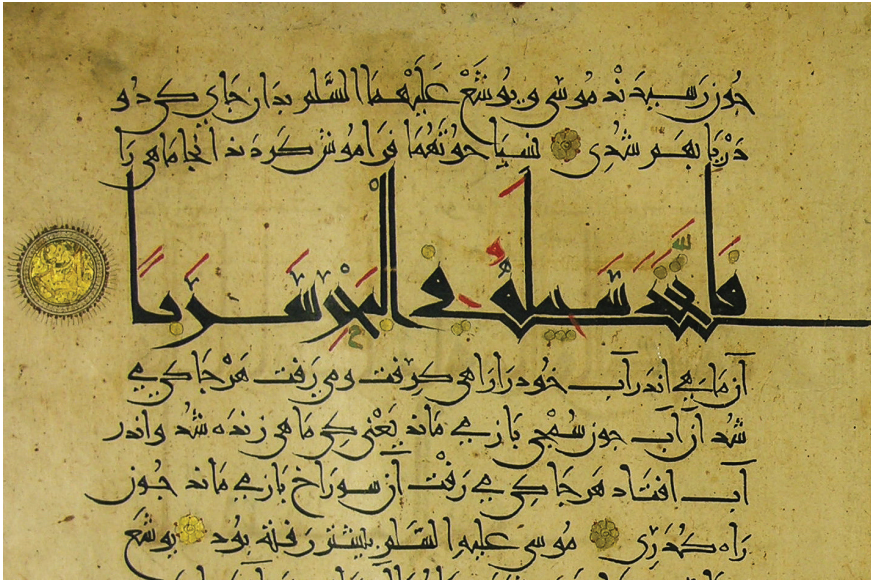 چون رسیدند موسی و یوشع علیهما السلم بدان جای کی دو
دریا بهم شدی نسیا حوتهما فراموش کردند آنجا ماهی را
فاتخذ سبیله فی البحر سربا
آن ماهی اندر آب خود را راهی کرفت و می رفت هر جا کی می
شد از آب چون سمجی باز می ماند یعنی کی ماهی زنده شد و اندر
آب افتاد هر جا کی می رفت آن سوراخ باز می ماند چون
راه کذری موسی علیه السلم بیشتر رفته بود یوشع